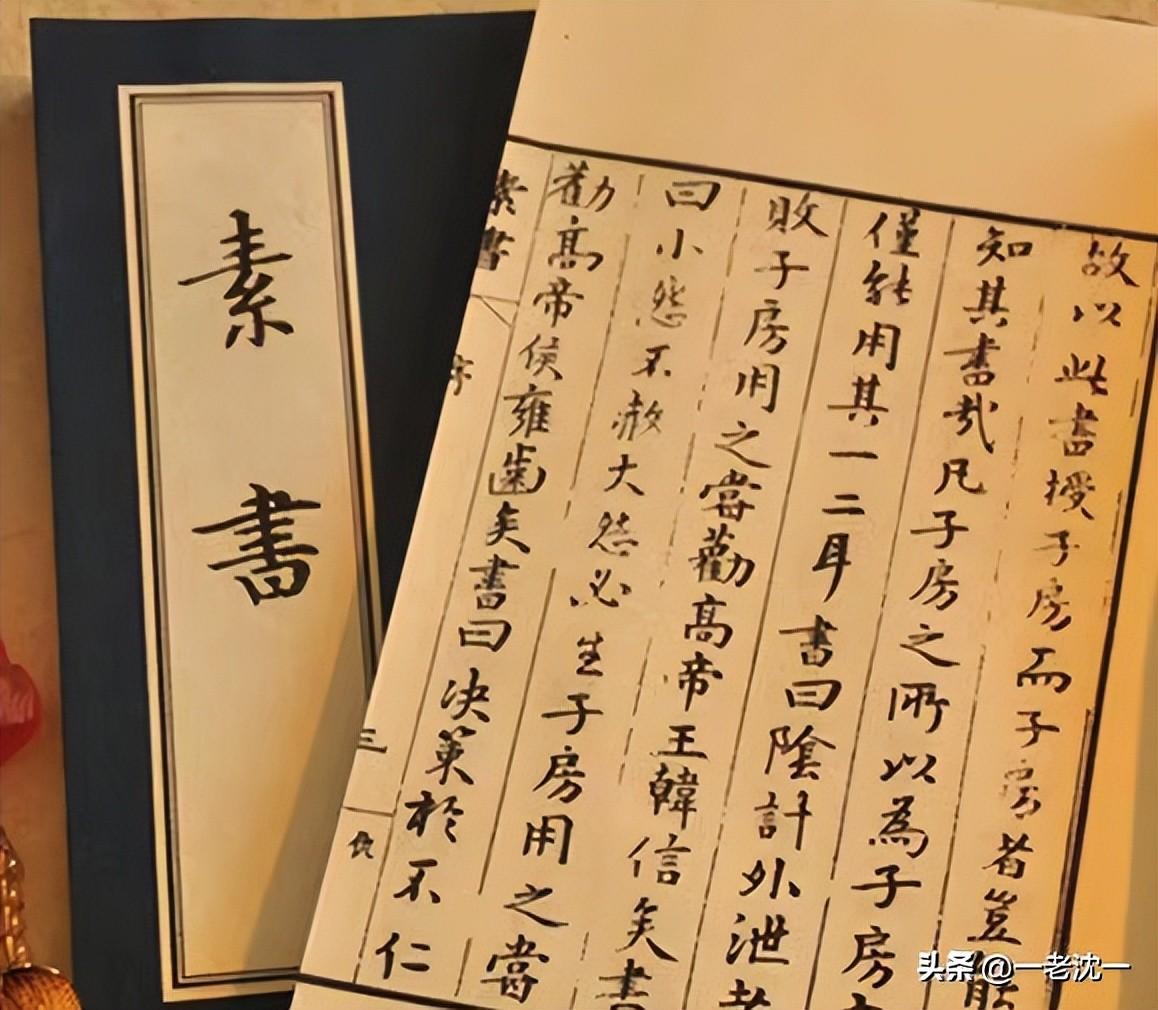 素
書
故以此書授子房而子房者豈能
知其書哉凡子房之所以為子房
僅能用其一二耳書曰陰計外泄者
敗子房用之嘗勸高帝王韓信矣書
曰小怨不赦大怨必生子房用之嘗
勸高帝侯雍齒矣書曰决策於不仁
素書
序
三
头条 @一老沈一